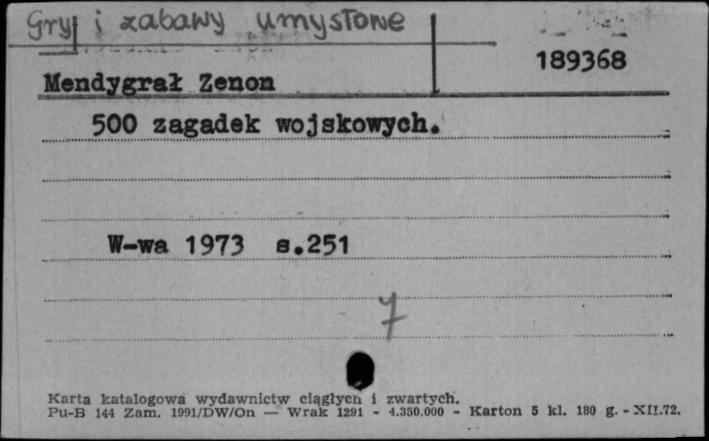 Gry i zabawy umysłowe
189368
Mendygrał Zenon
500 zagadek wojskowych.
W-wa 1973 s.251
7
Karta katalogowa wydawnictw ciągłych i zwartych.
Pu-B 144 Zam. 1991/DW/On — Wrak 1291 - 4.350.000 - Karton 5 kl. 180 g. - XII.72.